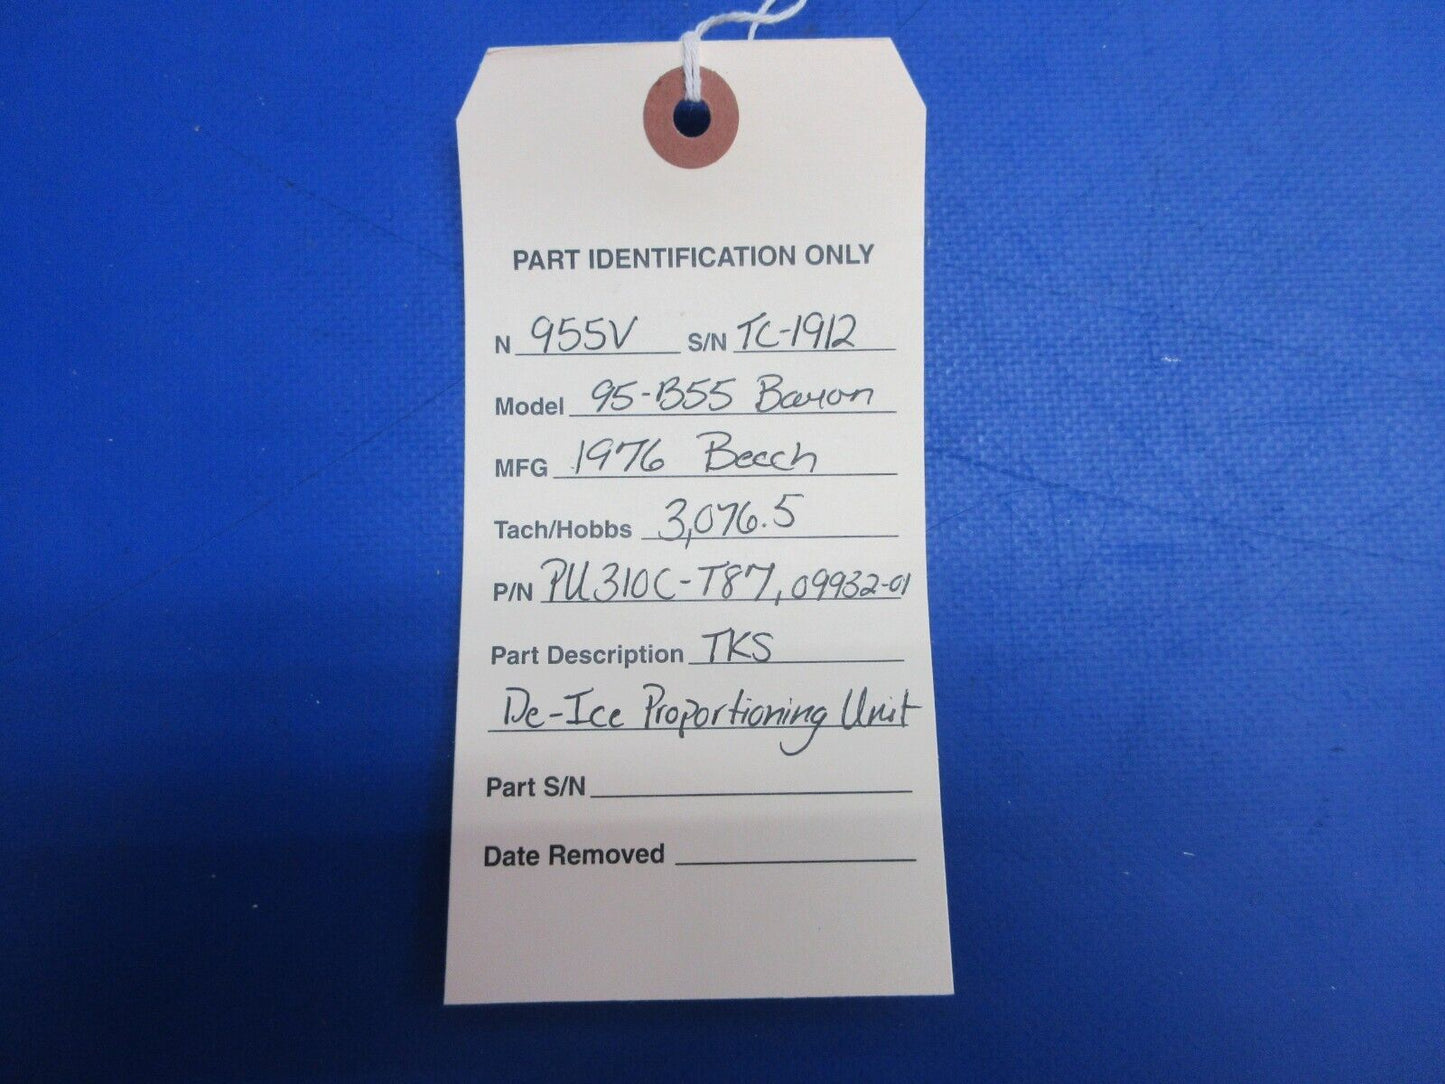 PART IDENTIFICATION ONLY
N 955V S/N TC-1912
Model 95-B55 Baron
MFG 1976 Beech
Tach/Hobbs 3,076.5
P/N PU310C-T87, 09932-01
Part Description TKS
De-Ice Proportioning Unit
Part S/N
Date Removed